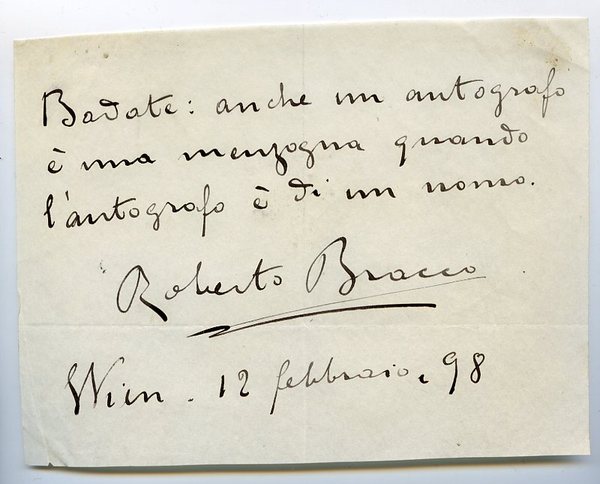 Badate: anche un autografo
è una menzogna quando
l'autografo è di un uomo.
Roberto Bracco
Wien. 12 febbraio, 98